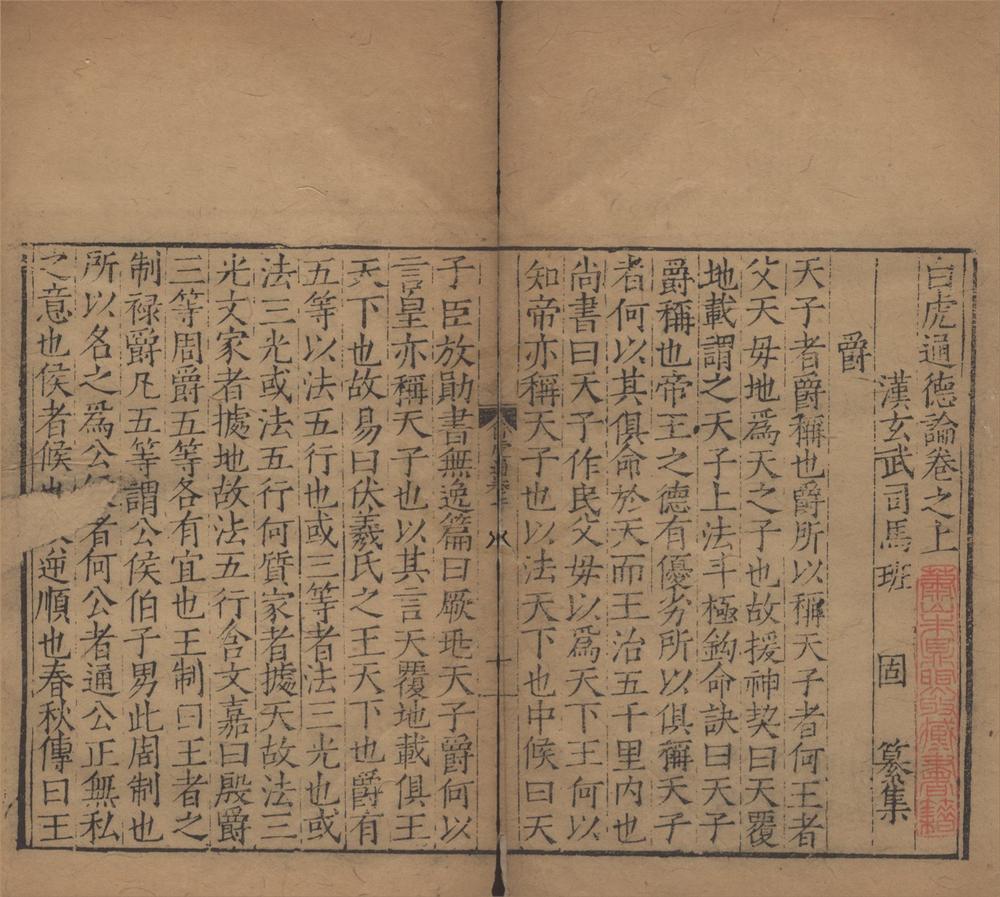 白虎通德論卷之上
漢玄武司馬班固纂集
爵
天子者爵稱也爵所以稱天子者何王者
父天毋地爲天之子也故援神契曰天覆
地載謂之天子上法斗極鈎命訣曰天子
爵稱也帝王之德有優劣所以俱稱天子
者何以其俱命於天而王治五千里内也
尚書曰天子作民父毋以爲天下王何以
知帝亦稱天子也以法天下也中候曰天
子臣放勛書無逸篇曰厥兆天子爵何以
言皇亦稱天子也以其言天覆地載俱王
天下也故易曰伏羲氏之王天下也爵有
五等以法五行也或三等者法三光也或
法三光或法五行何質家者據天故法三
光文家者據地故法五行含文嘉曰殷爵
三等周爵五等各有宜也王制曰王者之
制禄爵凡五等謂公侯伯子男此周制也
所以名之爲公者何公者通公正無私
之意也侯者候逆順也春秋傳曰王